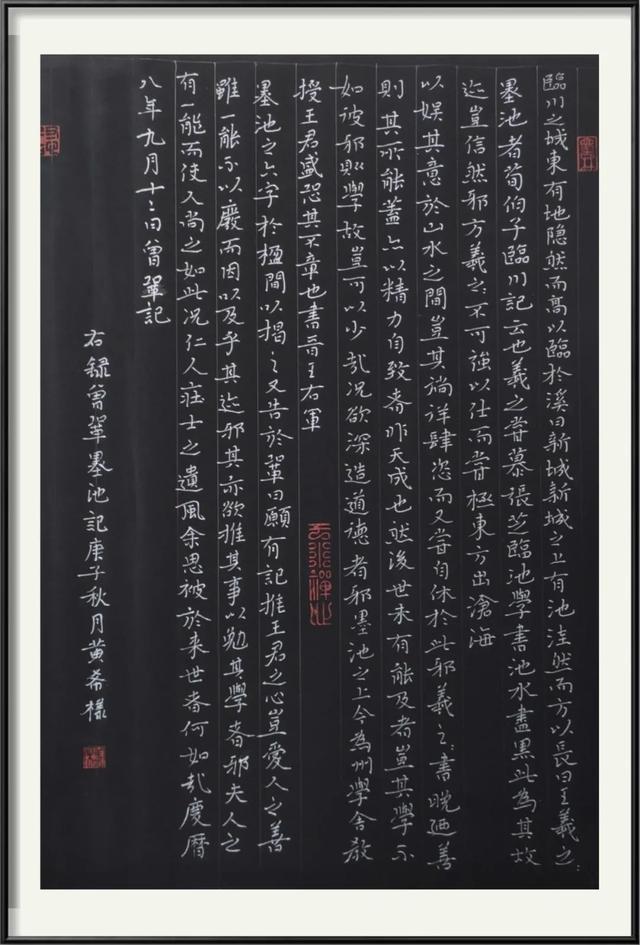 臨川之城東有地隐然而高以臨於溪曰新城新城之上有池洼然而方以長曰王羲之:
墨池者荀伯子臨川記云也羲之嘗慕張芝臨池學書池水盡黑此為其故
迹豈信然邪方羲之:不可強以仕而嘗極東方出滄海
以娱其意於山水之間豈其徜徉肆恣而又嘗自休於此邪羲之:書晚廼善
則其所能蓋亦以精力自致者非天成也然後世未有能及者豈其學不
如彼邪則學故豈可以少哉况欲深造道德者邪墨池之上今為州學舍教
授王君盛恐其不章也書晉王右軍
墨池之六字於楹間以揭之又告於鞏曰願有記推王君之心豈愛人之善
雖一能不以廢而因以及乎其迹邪其亦欲推其事以勉其學者邪夫人之
有一能而使人尚之如此况仁人莊士之遺風余思被於来世者何如哉慶曆
八年九月十二日曾鞏記
右録曾鞏墨池記庚子秋月黄希樣